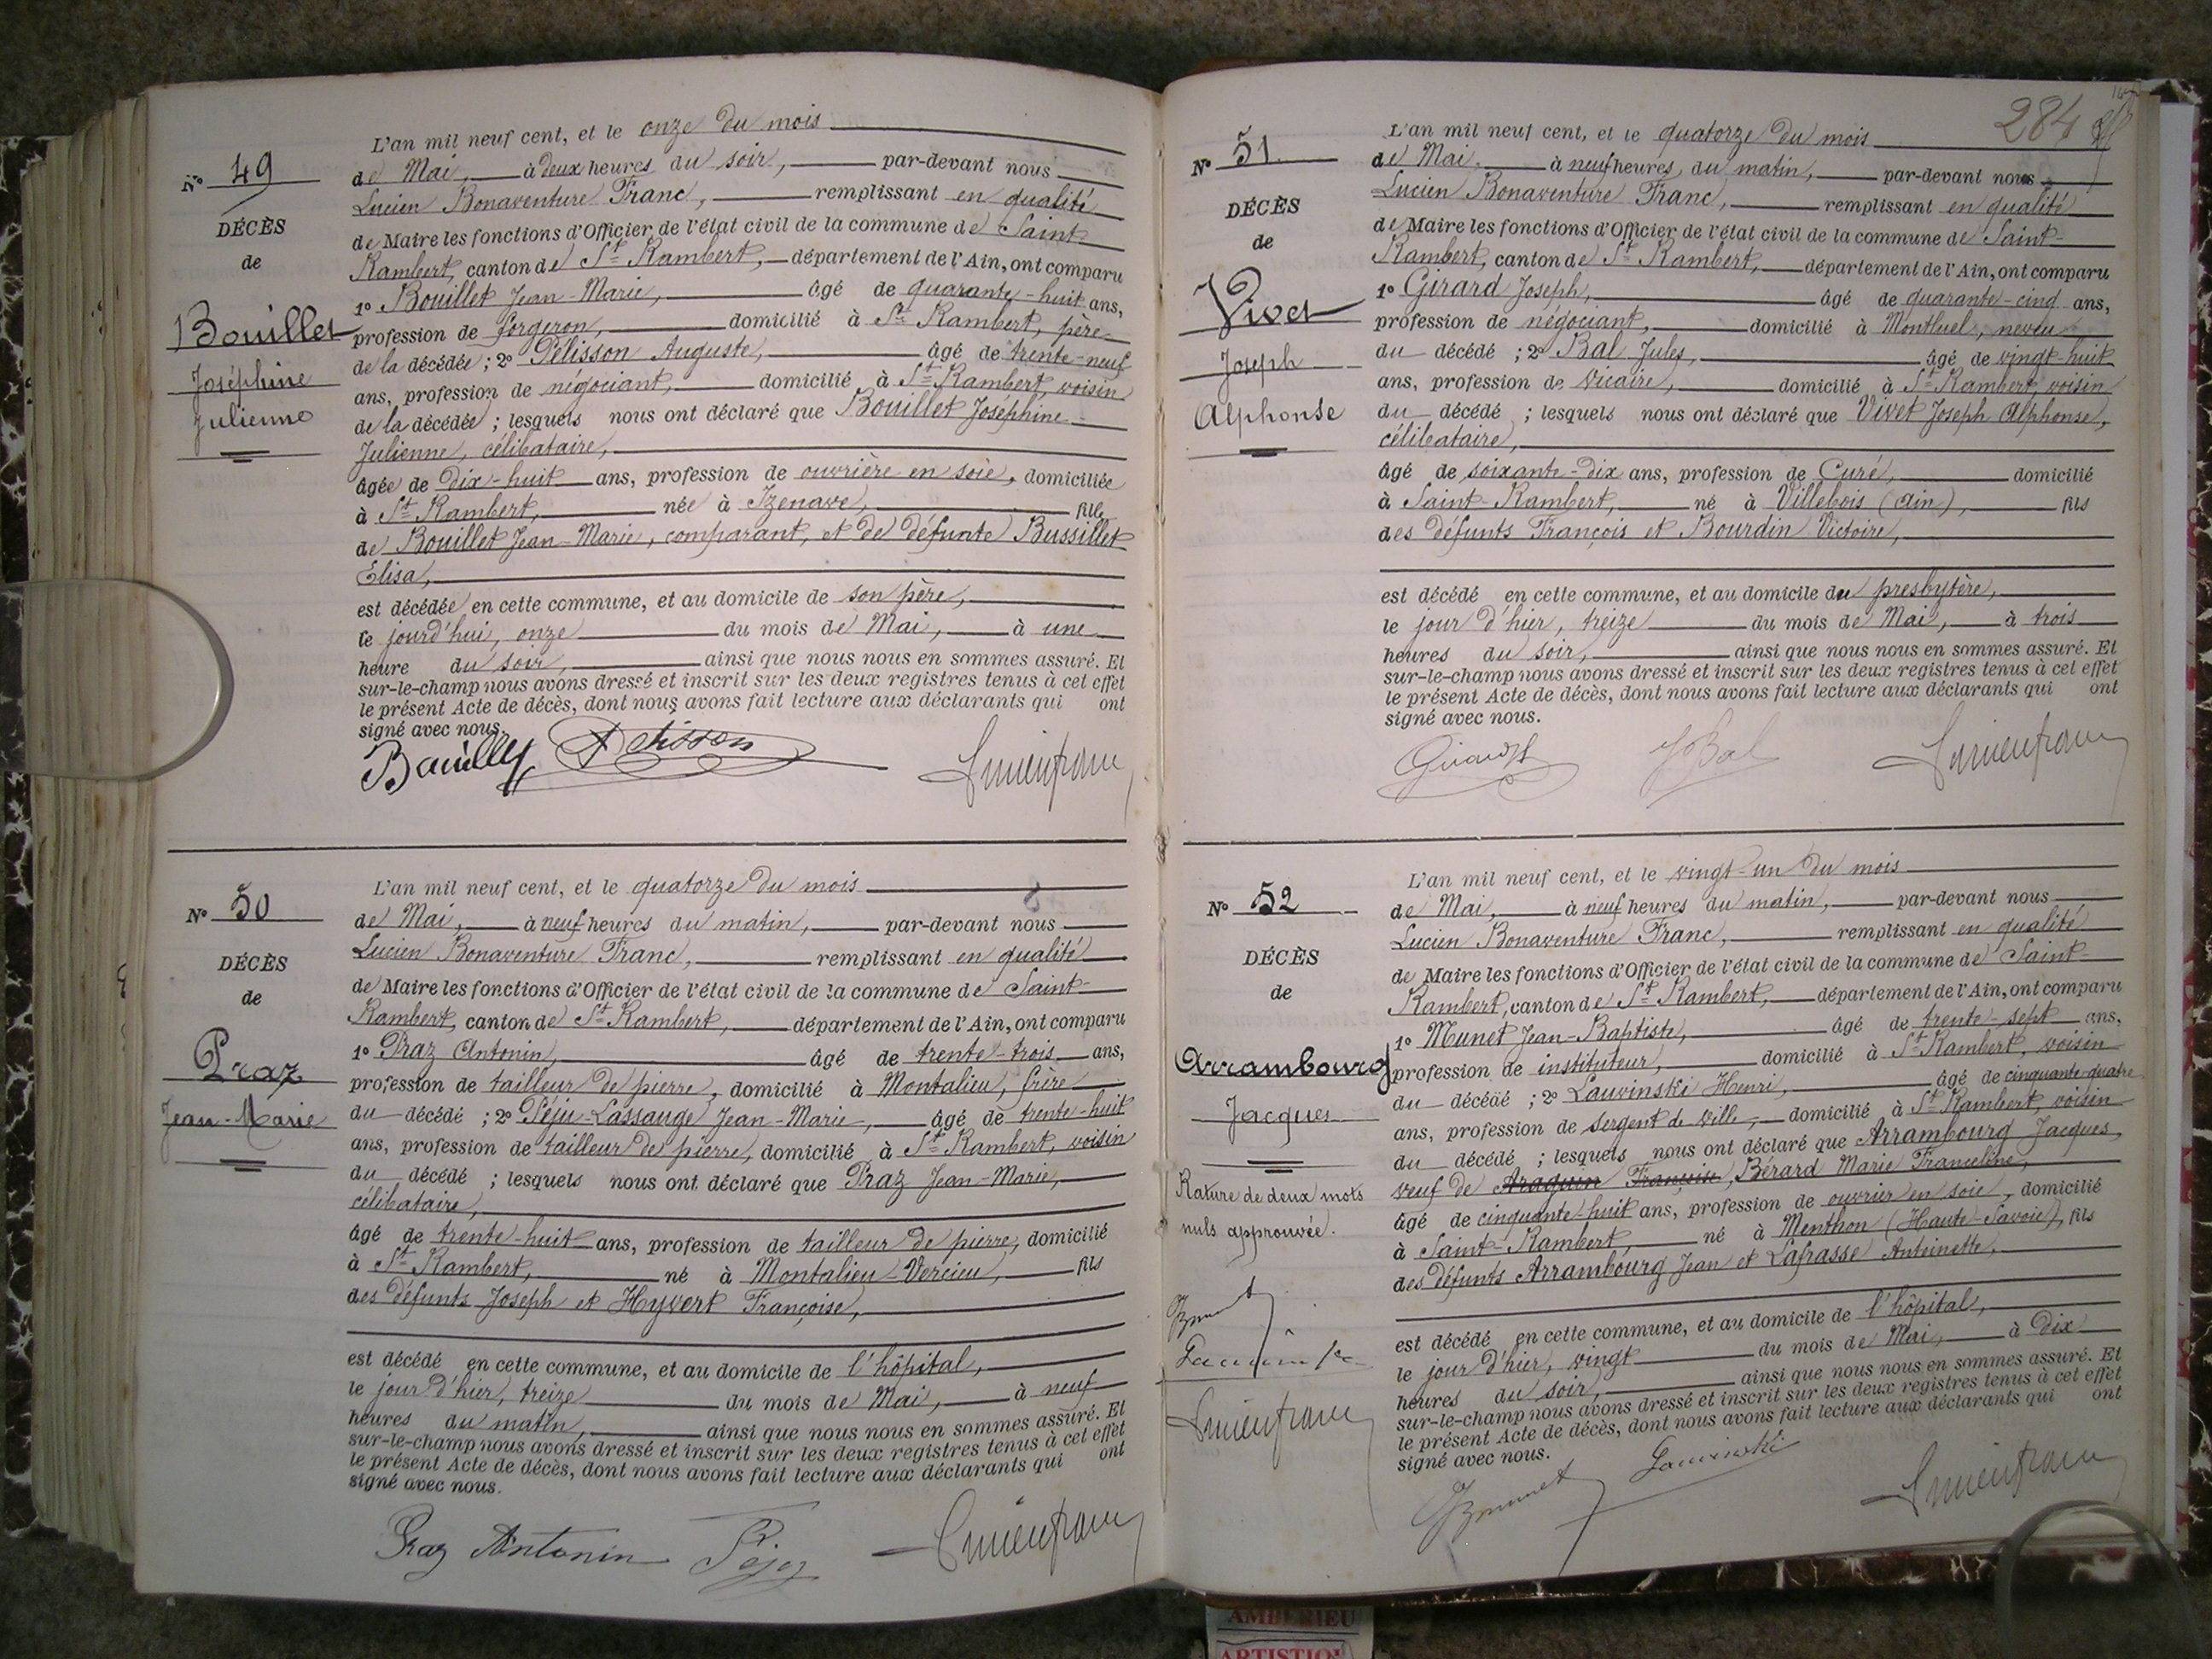 N° 49
DÉCÈS
de
Bouillet
Joséphine
Julienne
L'an mil neuf cent, et le onze du mois
de Mai, à deux heures du soir, par-devant nous
Lucien Bonaventure Franc, remplissant en qualité
de Maire les fonctions d'Officier de l'état civil de la commune de Saint-
Rambert, canton de St Rambert, département de l'Ain, ont comparu
1° Bouillet Jean-Marie, âgé de quarante-huit ans,
profession de forgeron, domicilié à St Rambert, père
de la décédée ; 2° Pélisson Auguste, âgé de trente-neuf
ans, profession de négociant, domicilié à St Rambert, voisin
de la décédée ; lesquels nous ont déclaré que Bouillet Joséphine
Julienne, célibataire,
âgée de dix-huit ans, profession de ouvrière en soie, domiciliée
à St Rambert, née à Izenave, fille
de Bouillet Jean-Marie, comparant, et de défunte Bussillet
Elisa,
est décédée en cette commune, et au domicile de son père,
le jourd'hui, onze du mois de Mai, à une
heure du soir, ainsi que nous nous en sommes assuré. Et
sur-le-champ nous avons dressé et inscrit sur les deux registres tenus à cet effet
le présent Acte de décès, dont nous avons fait lecture aux déclarants qui ont
signé avec nous.
Bouillet Pelisson Lucienfranc
N° 50
DÉCÈS
de
Praz
Jean-Marie
L'an mil neuf cent, et le quatorze du mois
de Mai, à neuf heures du matin, par-devant nous
Lucien Bonaventure Franc, remplissant en qualité
de Maire les fonctions d'Officier de l'état civil de la commune de Saint-
Rambert, canton de St Rambert, département de l'Ain, ont comparu
1° Praz Antonin, âgé de trente-trois ans,
profession de tailleur de pierre, domicilié à Montalieu, frère
du décédé ; 2° Péju-Lassauge Jean-Marie, âgé de trente-huit
ans, profession de tailleur de pierre, domicilié à St Rambert, voisin
du décédé ; lesquels nous ont déclaré que Praz Jean-Marie,
célibataire,
âgé de trente-huit ans, profession de tailleur de pierre, domicilié
à St Rambert, né à Montalieu-Vercieu, fils
des défunts Joseph et Hyvert Françoise,
est décédé en cette commune, et au domicile de l'hôpital,
le jour d'hier, treize du mois de Mai, à neuf
heures du matin, ainsi que nous nous en sommes assuré. Et
sur-le-champ nous avons dressé et inscrit sur les deux registres tenus à cet effet
le présent Acte de décès, dont nous avons fait lecture aux déclarants qui ont
signé avec nous.
Praz Antonin Lucienfranc
284
N° 51
DÉCÈS
de
Vivet
Joseph
Alphonse
L'an mil neuf cent, et le quatorze du mois
de Mai, à neuf heures du matin, par-devant nous
Lucien Bonaventure Franc, remplissant en qualité
de Maire les fonctions d'Officier de l'état civil de la commune de Saint-
Rambert, canton de St Rambert, département de l'Ain, ont comparu
1° Girard Joseph, âgé de quarante-cinq ans,
profession de négociant, domicilié à Montluel, neveu
du décédé ; 2° Bal Jules, âgé de vingt-huit
ans, profession de vicaire, domicilié à St Rambert, voisin
du décédé ; lesquels nous ont déclaré que Vivet Joseph Alphonse,
célibataire,
âgé de soixante-dix ans, profession de Curé, domicilié
à Saint-Rambert, né à Villebois (Ain), fils
des défunts François et Bourdin Victoire,
est décédé en cette commune, et au domicile du presbytère,
le jour d'hier, treize du mois de Mai, à trois
heures du soir, ainsi que nous nous en sommes assuré. Et
sur-le-champ nous avons dressé et inscrit sur les deux registres tenus à cet effet
le présent Acte de décès, dont nous avons fait lecture aux déclarants qui ont
signé avec nous.
Girard J Bal Lucienfranc
N° 52
DÉCÈS
de
Arrambourg
Jacques
Rature de deux mots
nuls approuvée.
Lucienfranc
L'an mil neuf cent, et le vingt-un du mois
de Mai, à neuf heures du matin, par-devant nous
Lucien Bonaventure Franc, remplissant en qualité
de Maire les fonctions d'Officier de l'état civil de la commune de Saint-
Rambert, canton de St Rambert, département de l'Ain, ont comparu
1° Munet Jean-Baptiste, âgé de trente-sept ans,
profession de instituteur, domicilié à St Rambert, voisin
du décédé ; 2° Lauvinski Henri, âgé de cinquante-quatre
ans, profession de sergent de ville, domicilié à St Rambert, voisin
du décédé ; lesquels nous ont déclaré que Arrambourg Jacques,
veuf de Bérard Marie Franceline,
âgé de cinquante-huit ans, profession de ouvrier en soie, domicilié
à Saint-Rambert, né à Menthon (Haute-Savoie), fils
des défunts Arrambourg Jean et Lafrasse Antoinette,
est décédé en cette commune, et au domicile de l'hôpital,
le jour d'hier, vingt du mois de Mai, à dix
heures du soir, ainsi que nous nous en sommes assuré. Et
sur-le-champ nous avons dressé et inscrit sur les deux registres tenus à cet effet
le présent Acte de décès, dont nous avons fait lecture aux déclarants qui ont
signé avec nous.
JBmunet Lauvinski Lucienfranc
AMBERIEU